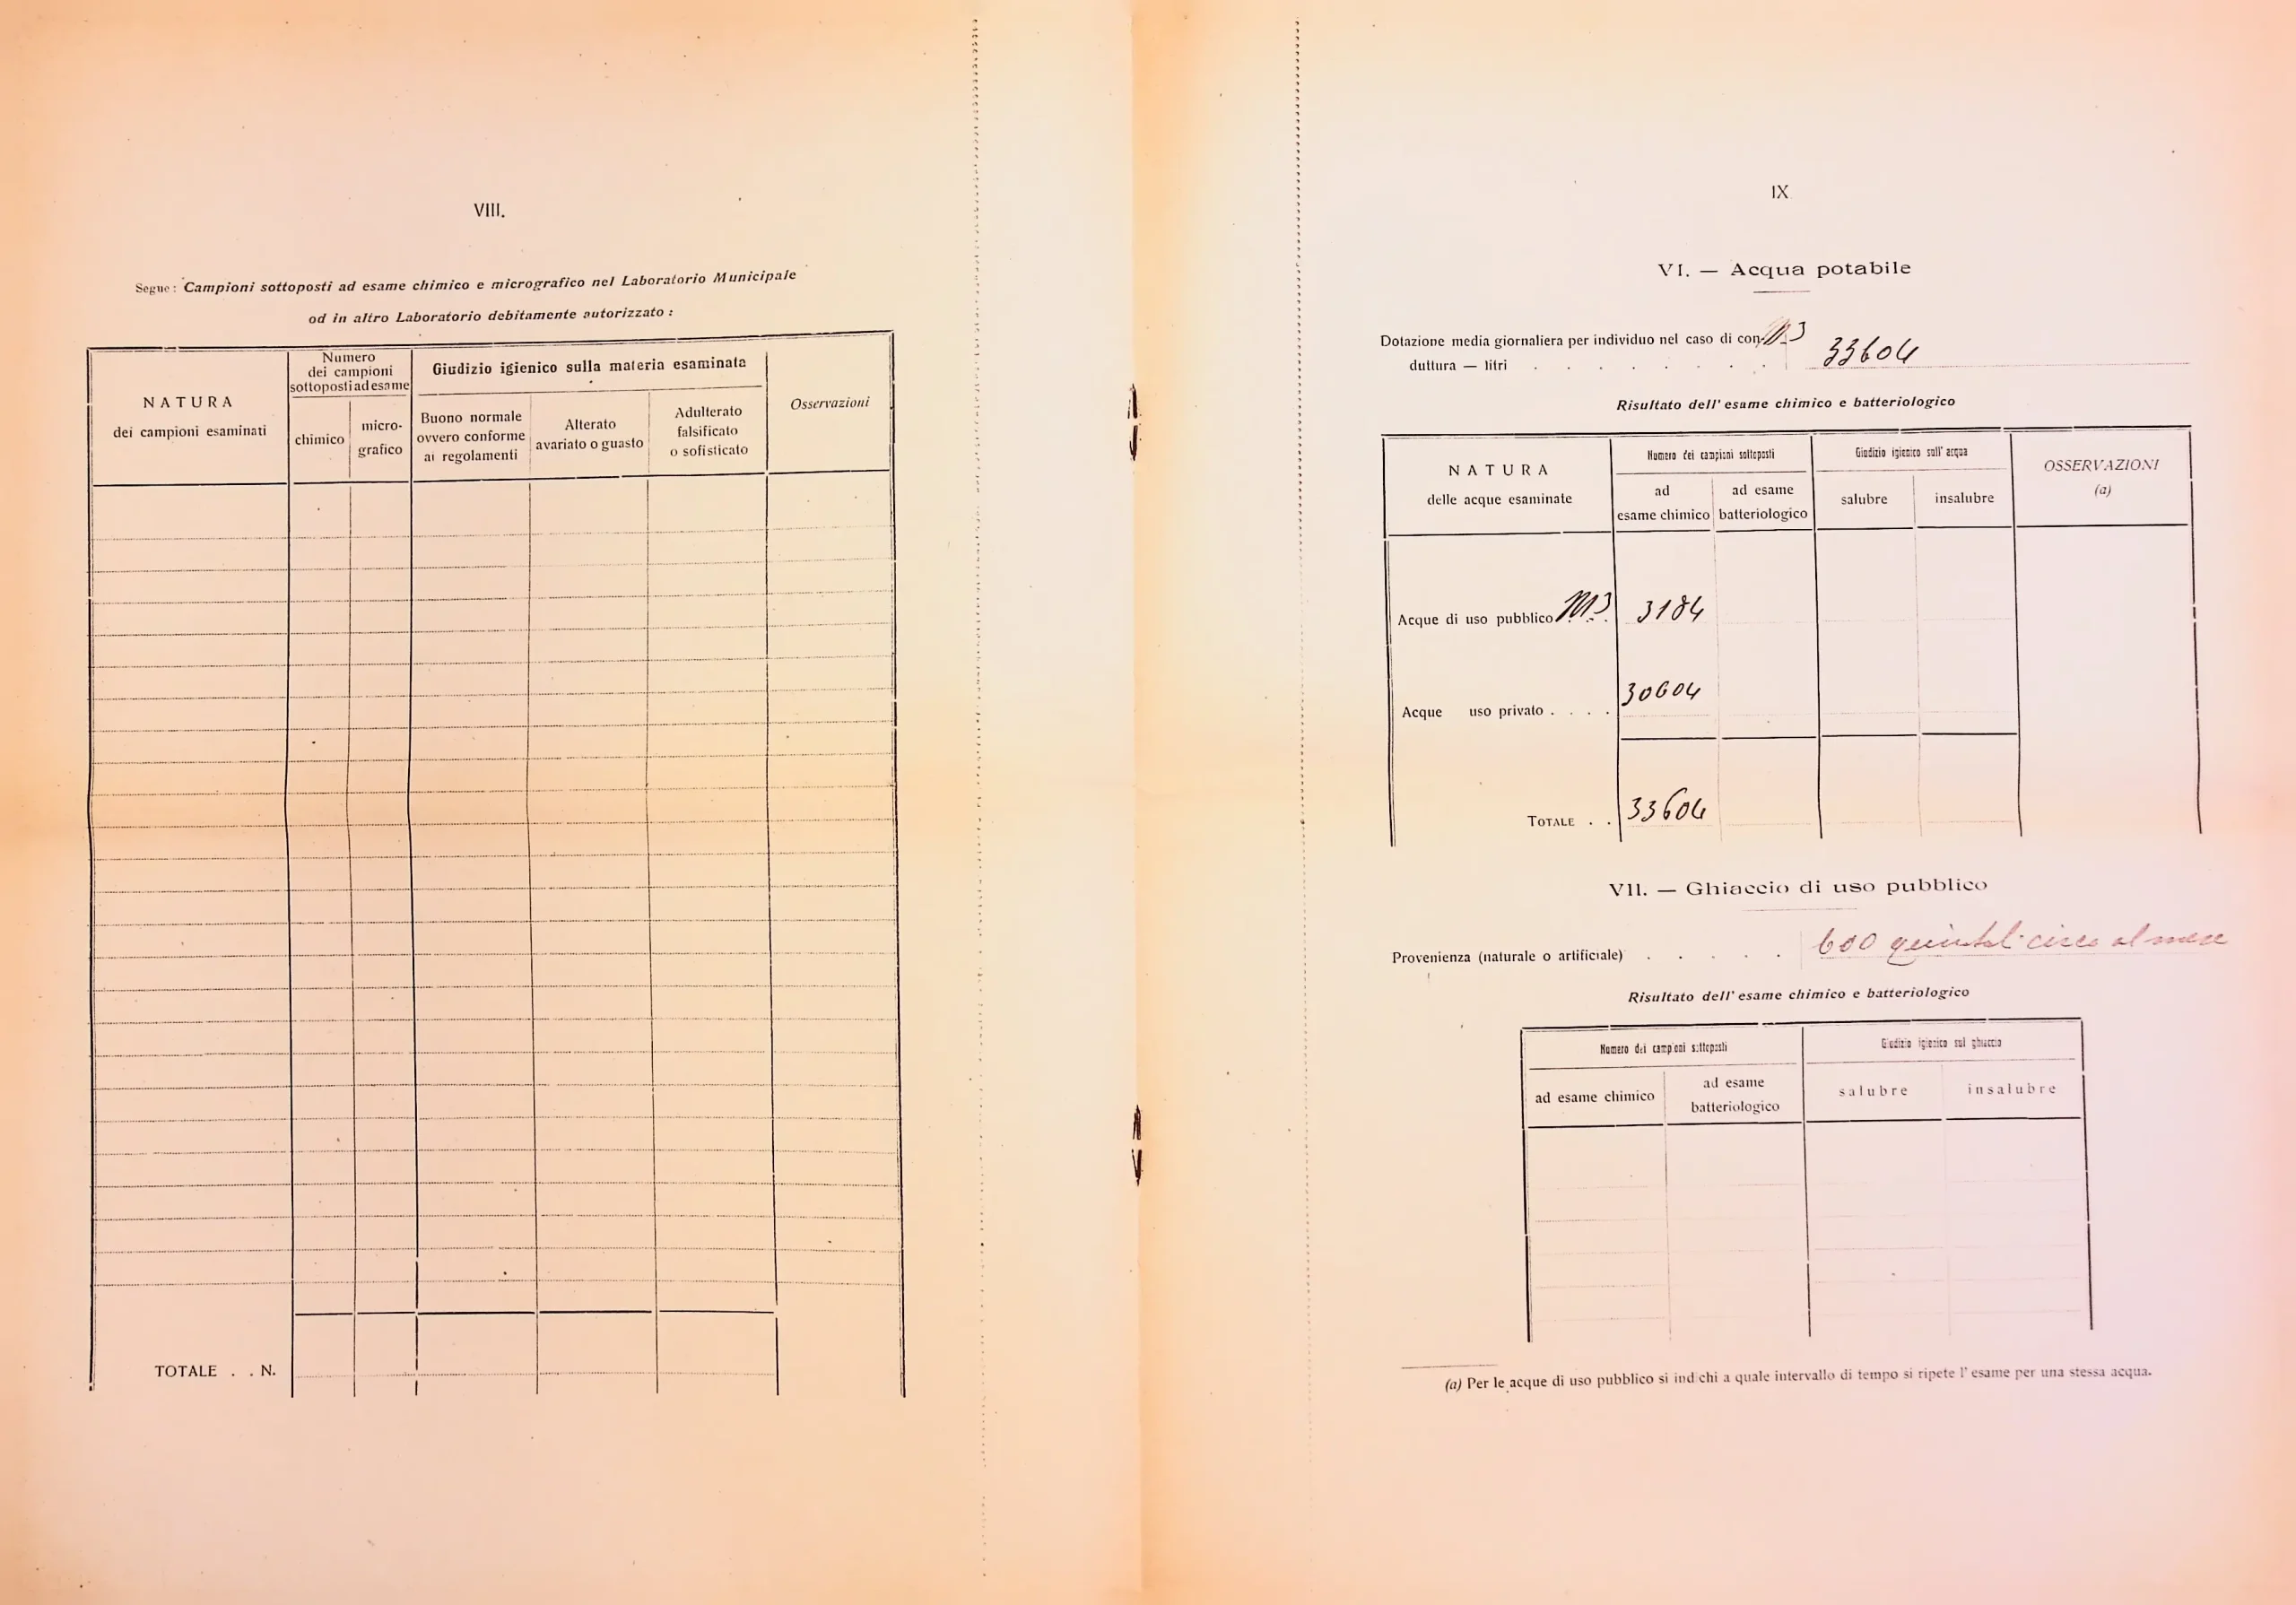 VIII.
Segue: Campioni sottoposti ad esame chimico e micrografico nel Laboratorio Municipale
od in altro Laboratorio debitamente autorizzato :
NATURA
dei campioni esaminati
Numero
dei campioni
sottoposti ad esame
chimico
micro-
grafico
Giudizio igienico sulla materia esaminata
Buono normale
ovvero conforme
ai regolamenti
Alterato
avariato o guasto
Adulterato
falsificato
o sofisticato
Osservazioni
TOTALE . . N.
IX
VI. — Acqua potabile
Dotazione media giornaliera per individuo nel caso di con- M3
duttura — litri . . . . . . . . 33604
Risultato dell' esame chimico e batteriologico
NATURA
delle acque esaminate
Numero dei campioni sottoposti
ad
esame chimico
ad esame
batteriologico
Giudizio igienico sull' acqua
salubre
insalubre
OSSERVAZIONI
(a)
Acque di uso pubblico M3 3184
Acque uso privato . . . . 30604
TOTALE . . 33604
VII. — Ghiaccio di uso pubblico
Provenienza (naturale o artificiale) . . . . . 600 quintali circa al mese
Risultato dell' esame chimico e batteriologico
Numero dei campioni sottoposti
ad esame chimico
ad esame
batteriologico
Giudizio igienico sul ghiaccio
salubre
insalubre
(a) Per le acque di uso pubblico si indichi a quale intervallo di tempo si ripete l' esame per una stessa acqua.